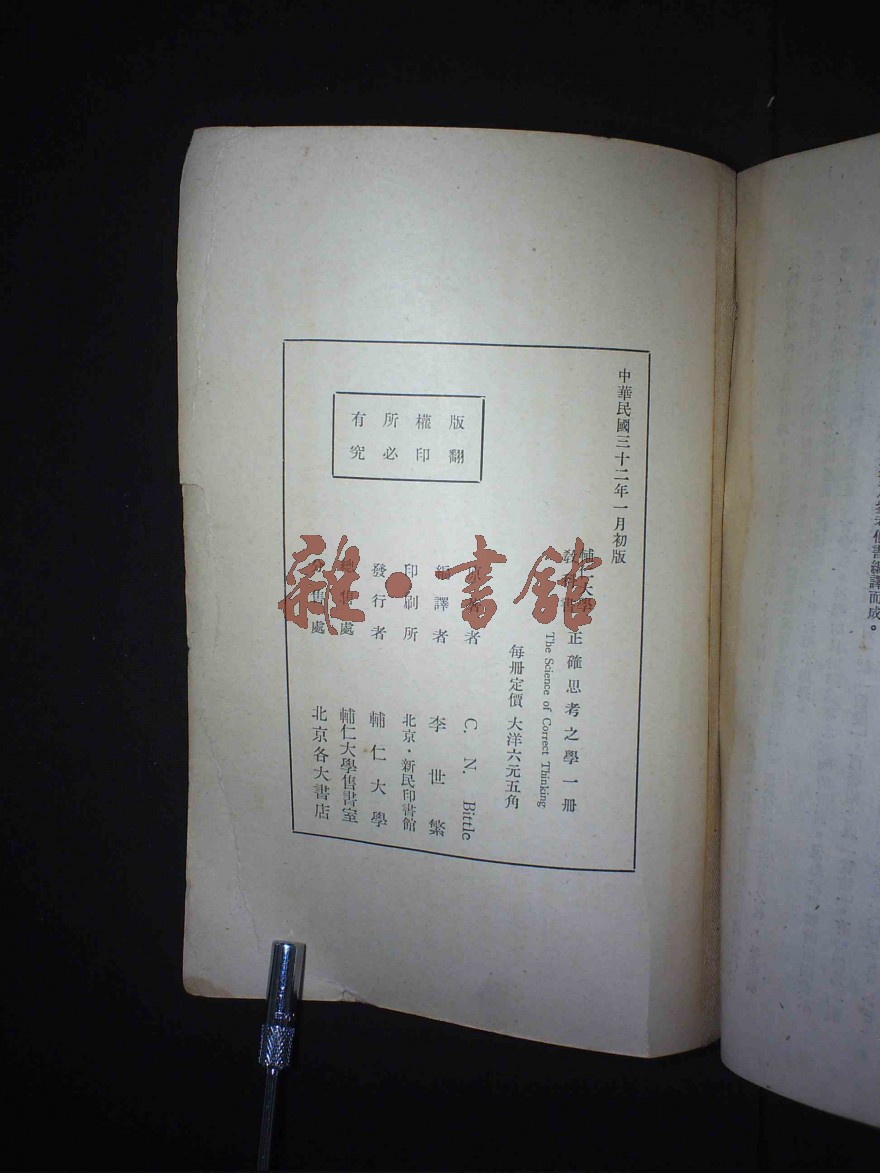 中華民國三十二年一月初版
輔仁大學
教科書
正確思考之學一冊
The Science of Correct Thinking
每冊定價 大洋六元五角
著者 C. N. Bittle
編譯者 李世繁
印刷所 北京·新民印書館
發行者 輔仁大學
售處 輔仁大學售書室
售處 北京各大書店
版權所有
翻印必究
雜·書館
編譯而成。